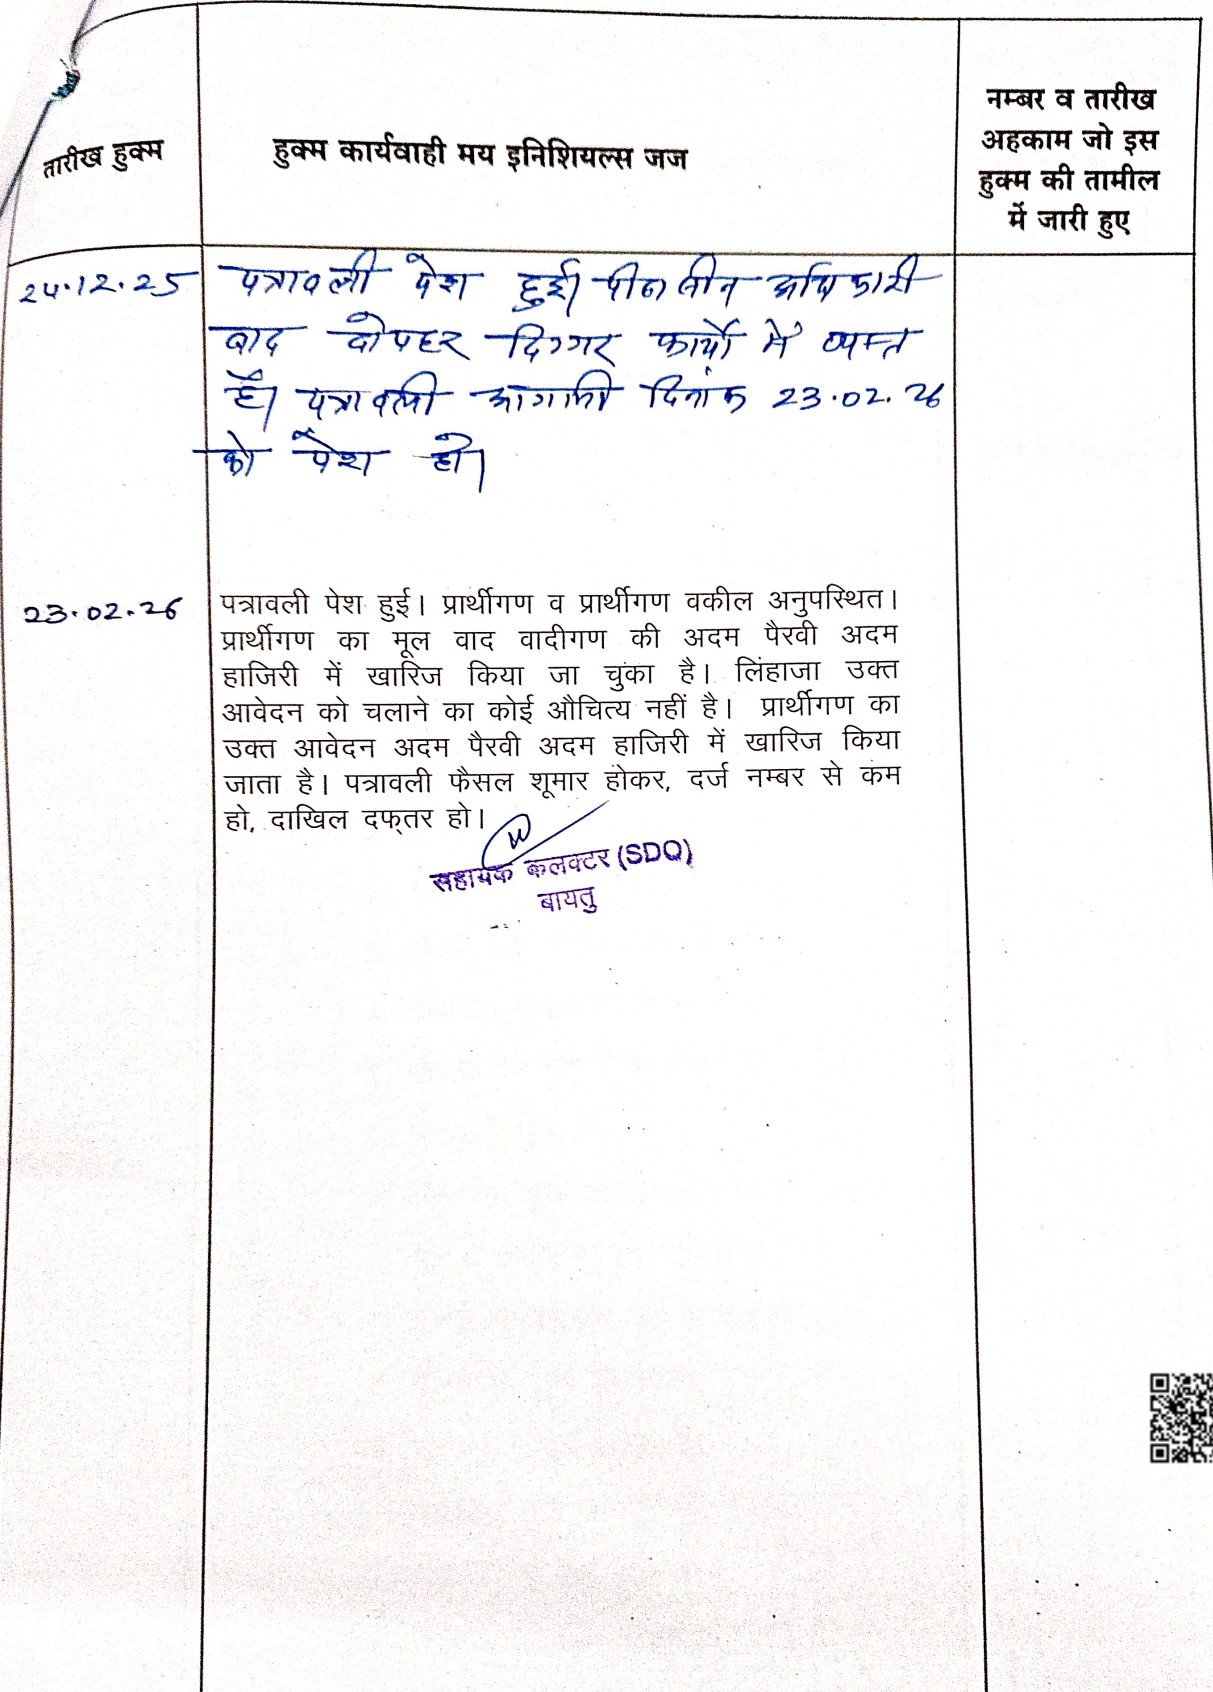 तारीख हुक्म
हुक्म कार्यवाही मय इनिशियल्स जज
नम्बर व तारीख
अहकाम जो इस
हुक्म की तामील
में जारी हुए
24.12.25
पत्रावली पेश हुई। पीठासीन अधिकारी
बाद दोपहर दिगर कार्यो में व्यस्त
है। पत्रावली आगामी दिनांक 23.02.26
को पेश हो।
23.02.26
पत्रावली पेश हुई। प्रार्थीगण व प्रार्थीगण वकील अनुपस्थित।
प्रार्थीगण का मूल वाद वादीगण की अदम पैरवी अदम
हाजिरी में खारिज किया जा चुंका है। लिंहाजा उक्त
आवेदन को चलाने का कोई औचित्य नहीं है। प्रार्थीगण का
उक्त आवेदन अदम पैरवी अदम हाजिरी में खारिज किया
जाता है। पत्रावली फैसल शूमार होकर, दर्ज नम्बर से कम
हो, दाखिल दफ्तर हो।
सहायक कलक्टर (SDO)
बायतु